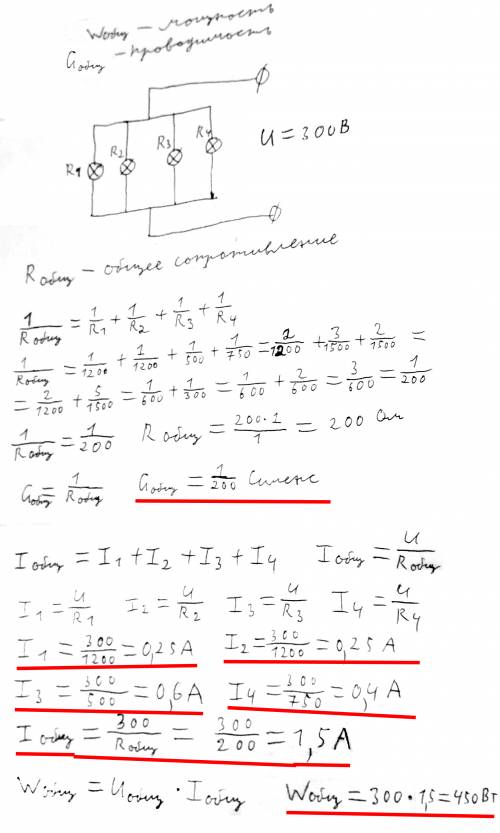 Wобщ – мощность
Gобщ – проводимость
R1 R2 R3 R4 U = 300В
Rобщ – общее сопротивление
1/Rобщ = 1/R1 + 1/R2 + 1/R3 + 1/R4
1/Rобщ = 1/1200 + 1/1200 + 1/500 + 1/750 = 2/1200 + 3/1500 + 2/1500 =
= 2/1200 + 5/1500 = 1/600 + 1/300 = 1/600 + 2/600 = 3/600 = 1/200
1/Rобщ = 1/200 Rобщ = 200·1/1 = 200 Ом
Gобщ = 1/Rобщ Gобщ = 1/200 Сименс
Iобщ = I1 + I2 + I3 + I4 Iобщ = U/Rобщ
I1 = U/R1 I2 = U/R2 I3 = U/R3 I4 = U/R4
I1 = 300/1200 = 0,25 А I2 = 300/1200 = 0,25 А
I3 = 300/500 = 0,6 А I4 = 300/750 = 0,4 А
Iобщ = 300/Rобщ = 300/200 = 1,5 А
Wобщ = Uобщ · Iобщ Wобщ = 300 · 1,5 = 450 Вт